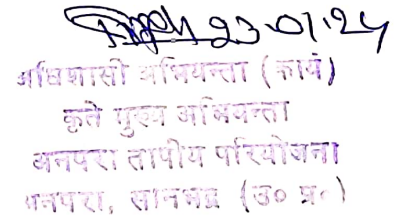 23.01.24
अधिशासी अभियन्ता (कार्य)
कृते मुख्य अभियन्ता
अनपरा तापीय परियोजना
अनपरा, सोनभद्र (उ० प्र०)